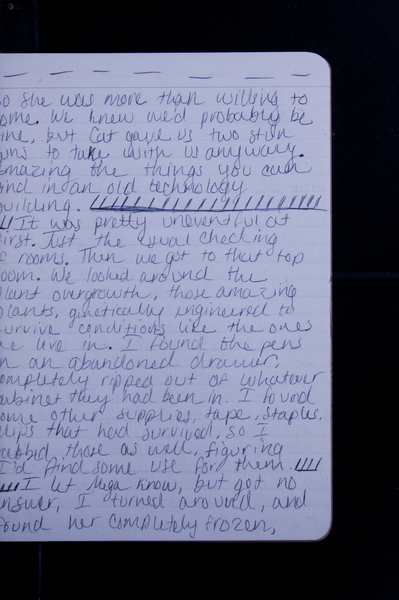 o she was more than willing to
ome. We knew we'd probably be
ine, but Cat gave us two stun
uns to take with us anyway.
mazing the things you can
ind in an old technology
uilding.
It was pretty uneventful at
first. Just the usual checking
f rooms. Then we got to that top
oom. We looked around the
lant overgrowth, those amazing
plants, genetically engineered to
survive conditions like the ones
we live in. I found the pens
in an abandoned drawer,
ompletely ripped out of whatever
abinet they had been in. I found
ome other supplies, tape, staples,
clips that had survived, so I
rabbed those as well, figuring
I'd find some use for them.
I let Mega know, but got no
nswer, I turned around, and
found her completely frozen,